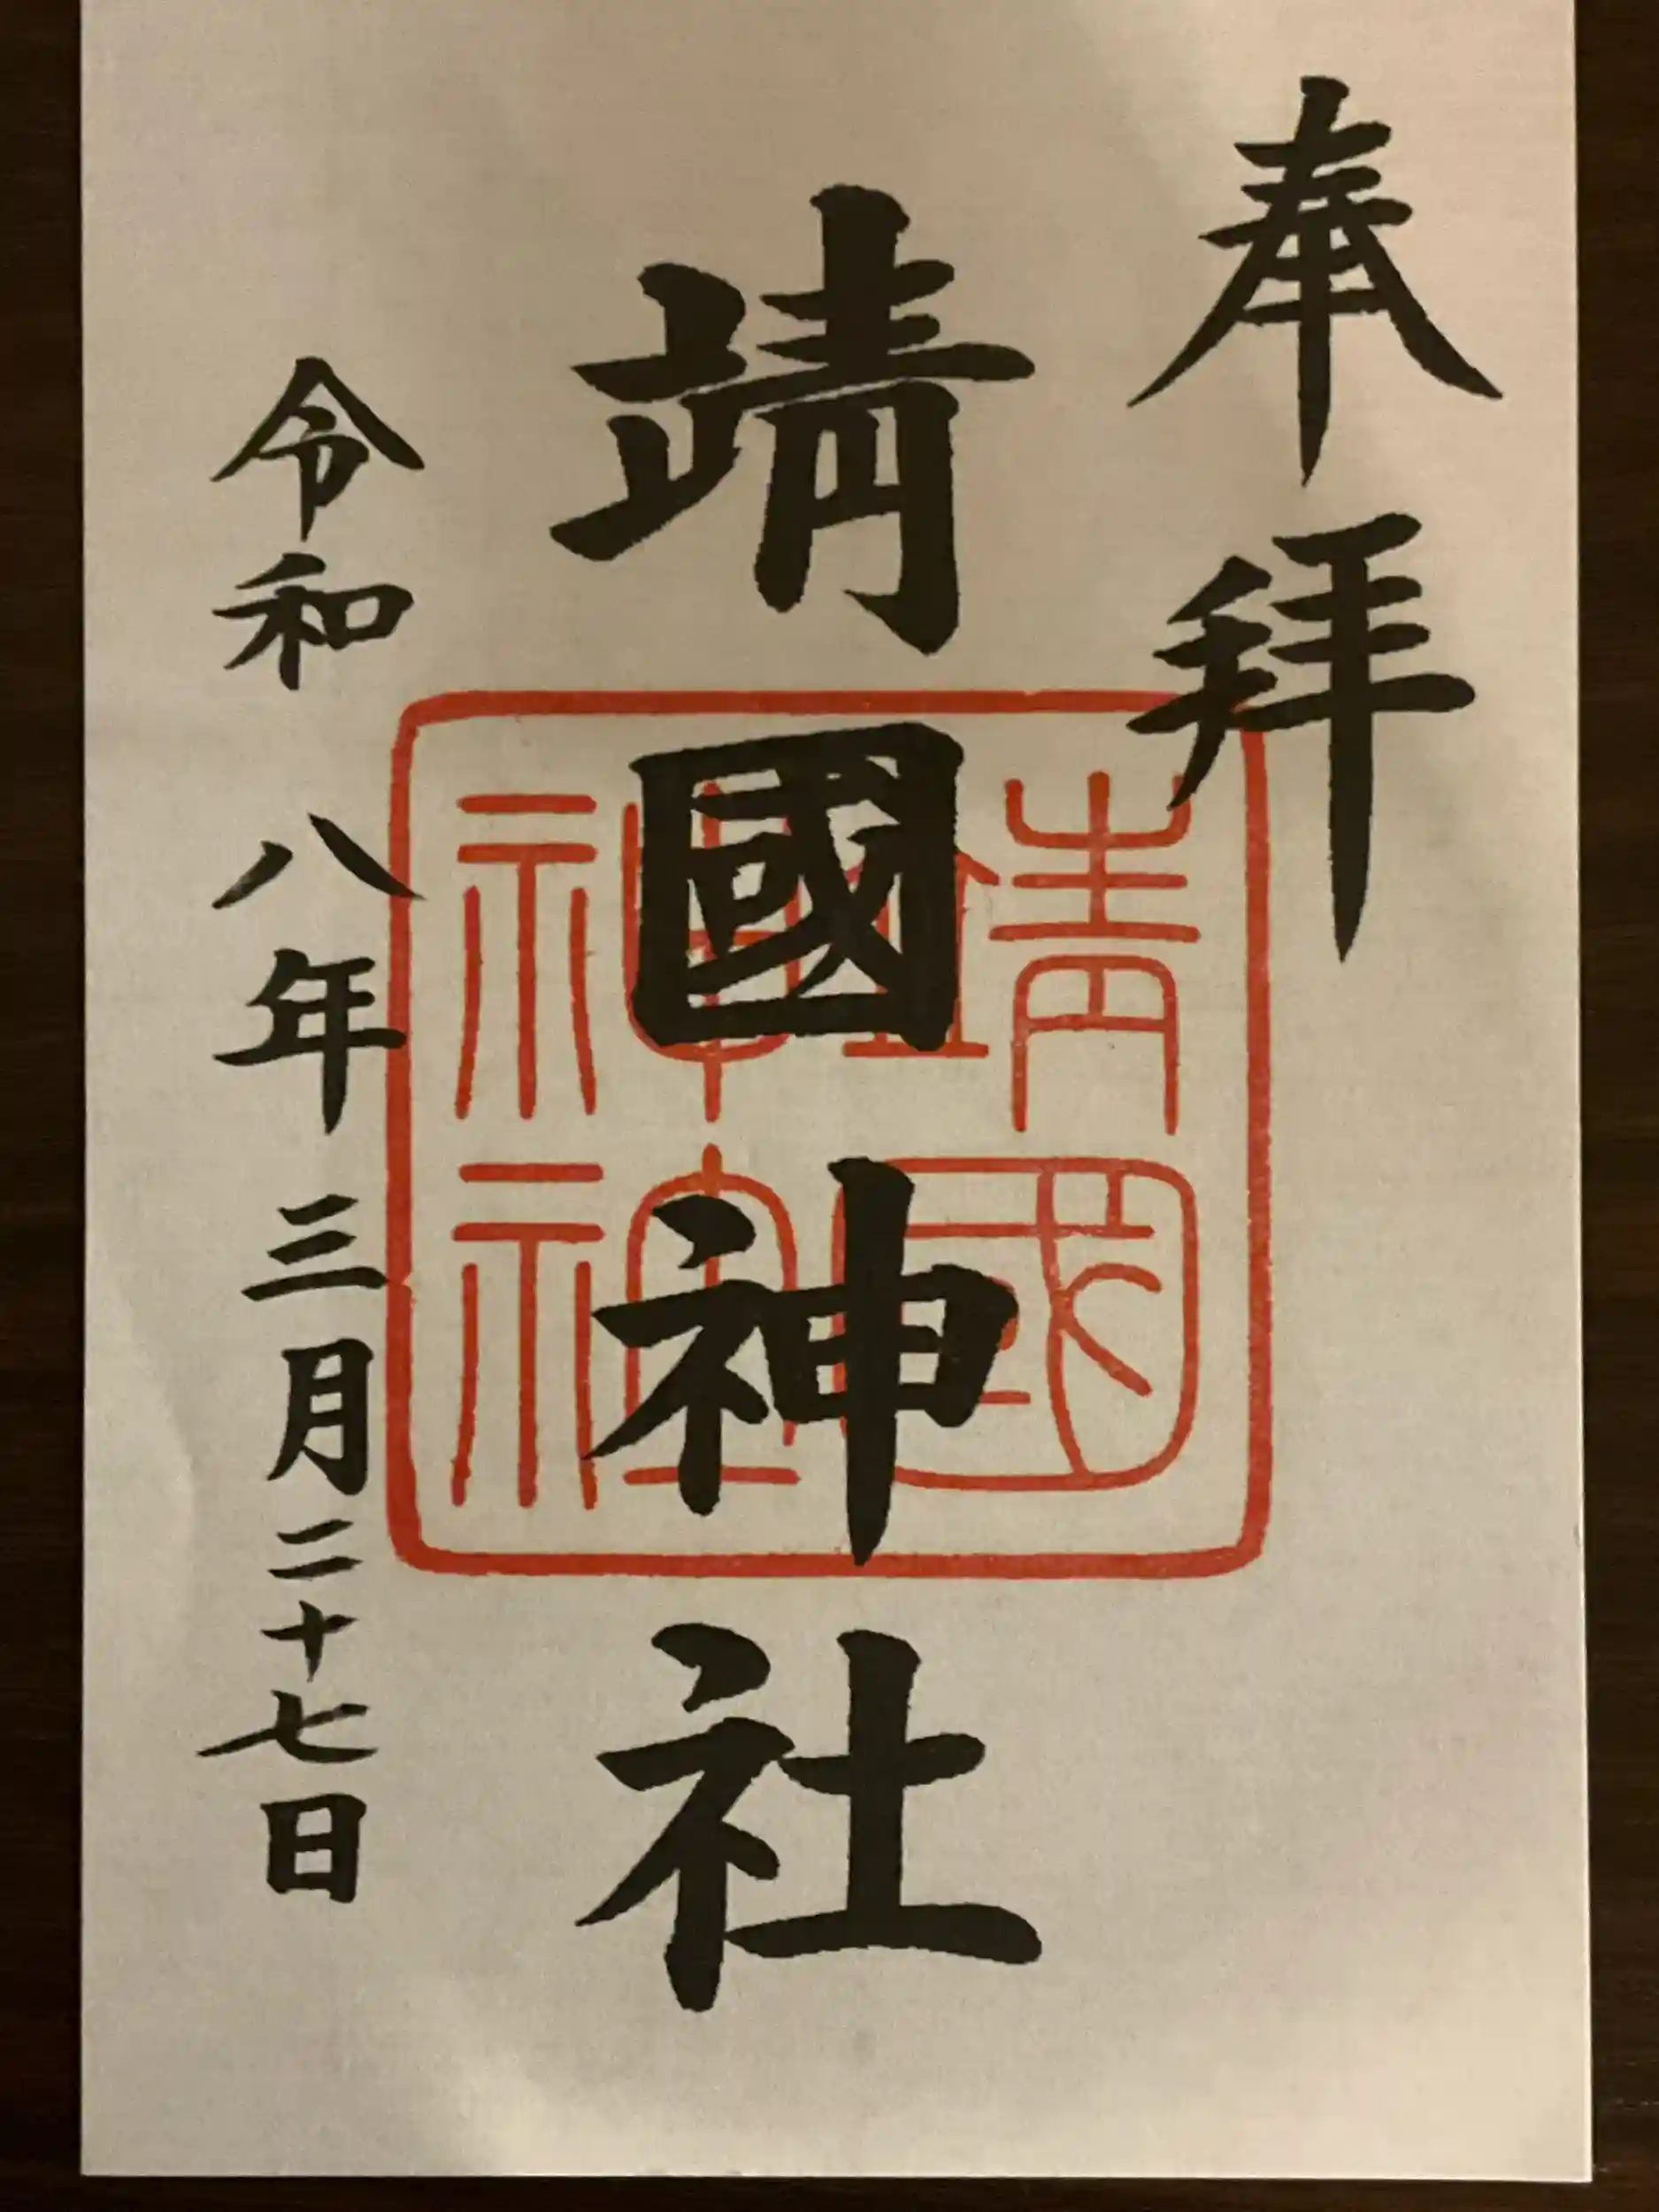 奉拝
靖國神社
靖國神社
令和八年三月二十七日